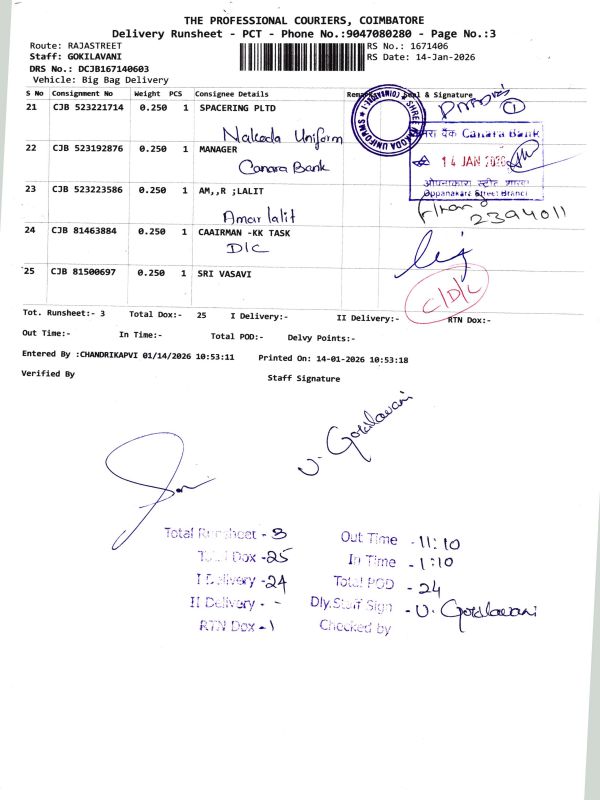 THE PROFESSIONAL COURIERS, COIMBATORE
Delivery Runsheet - PCT - Phone No.:9047080280 - Page No.:3
Route: RAJASTREET
RS No.: 1671406
Staff: GOKILAVANI
RS Date: 14-Jan-2026
DRS No.: DCJB167140603
Vehicle: Big Bag Delivery
S No Consignment No Weight PCS Consignee Details Seal & Signature
21 CJB 523221714 0.250 1 SPACERING PLTD
Nakoda Uniform
22 CJB 523192876 0.250 1 MANAGER
Canara Bank
केनरा बैंक Canara Bank
14 JAN 2026
ओपनाकारा स्ट्रीट शाखा
Oppanakara Street Branch
23 CJB 523223586 0.250 1 AM,,R ;LALIT
Amar lalit
2394011
24 CJB 81463884 0.250 1 CAAIRMAN -KK TASK
D/C
25 CJB 81500697 0.250 1 SRI VASAVI
C/D/C
Tot. Runsheet:- 3 Total Dox:- 25 I Delivery:- II Delivery:- RTN Dox:-
Out Time:- In Time:- Total POD:- Delvy Points:-
Entered By :CHANDRIKAPVI 01/14/2026 10:53:11 Printed On: 14-01-2026 10:53:18
Verified By Staff Signature
U. Gokilavani
Total Runsheet - 3
Total Dox - 25
I Delivery - 24
II Delivery - -
RTN Dox - 1
Out Time - 11:10
In Time - 1:10
Total POD - 24
Dly.Staff Sign - U. Gokilavani
Checked by